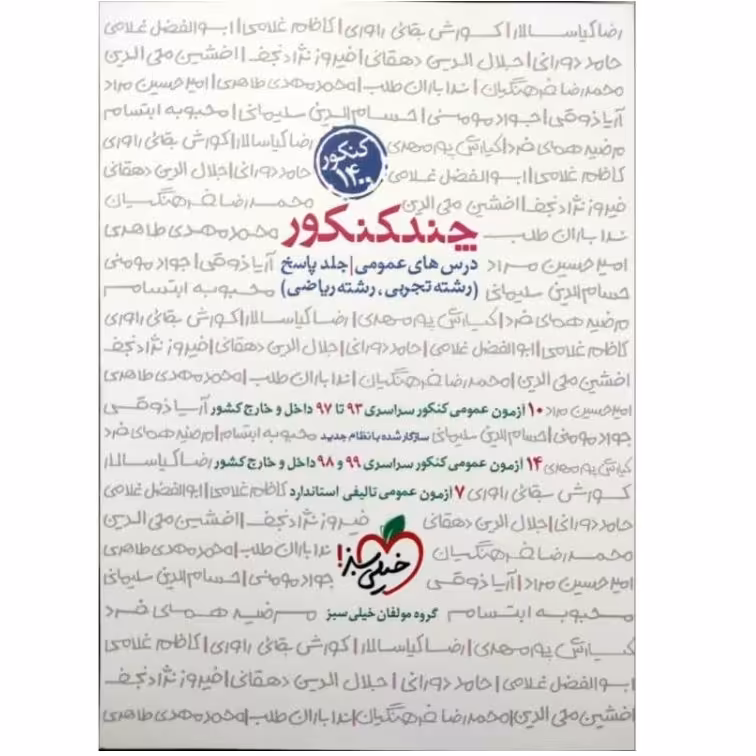 رضا کیاسالار|کورش بقائی راوری|کاظم غلامی|ابوالفضل غلامی
حامد دورانی|جلال الدین دهقانی|فیروز نژادنجف|افشین محی الدین
محمدرضا فرهنگیان|ندا باران طلب|محمدمهدی طاهری|امیرحسین مراد
آریا ذوقی|جواد مومنی|حسام الدین سلیمانی|محبوبه ابتسام
مرضیه همای فرد|کیارش پورمهدی
رضا کیاسالار|کورش بقائی راوری
کنکور
۱۴۰۰
کاظم غلامی|ابوالفضل غلامی
حامد دورانی|جلال الدین دهقانی
فیروز نژادنجف|افشین محی الدین
محمدرضا فرهنگیان
چند کنکور
ندا باران طلب
محمدمهدی طاهری
امیرحسین مراد
درس های عمومی|جلد پاسخ
آریا ذوقی|جواد مومنی
حسام الدین سلیمانی
(رشته تجربی، رشته ریاضی)
محبوبه ابتسام
مرضیه همای فرد|کیارش پورمهدی|رضا کیاسالار|کورش بقائی راوری
کاظم غلامی|ابوالفضل غلامی|حامد دورانی|جلال الدین دهقانی|فیروز نژادنجف
افشین محی الدین|محمدرضا فرهنگیان|ندا باران طلب|محمدمهدی طاهری
امیرحسین مراد ۱۰ آزمون عمومی کنکور سراسری ۹۳ تا ۹۷ داخل و خارج کشور آریا ذوقی
جواد مومنی|حسام الدین سلیمانی سازگار شده با نظام جدید محبوبه ابتسام|مرضیه همای فرد
کیارش پورمهدی ۱۴ آزمون عمومی کنکور سراسری ۹۹ و ۹۸ داخل و خارج کشور رضا کیاسالار
کورش بقائی راوری ۷ آزمون عمومی تالیفی استاندارد کاظم غلامی|ابوالفضل غلامی
حامد دورانی|جلال الدین دهقانی فیروز نژادنجف|افشین محی الدین
محمدرضا فرهنگیان خیلی سبز! ندا باران طلب|محمدمهدی طاهری
امیرحسین مراد|آریا ذوقی جواد مومنی|حسام الدین سلیمانی
محبوبه ابتسام گروه مولفان خیلی سبز مرضیه همای فرد
کیارش پورمهدی|رضا کیاسالار|کورش بقائی راوری|کاظم غلامی
ابوالفضل غلامی|حامد دورانی|جلال الدین دهقانی|فیروز نژادنجف
افشین محی الدین|محمدرضا فرهنگیان|ندا باران طلب|محمدمهدی طاهری